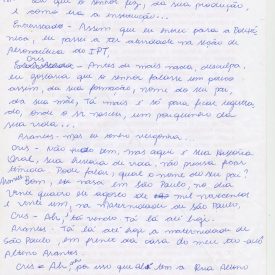 que o senhor fez, da sua produção,
e como era a instituição...
Encarregado - Assim que eu entrei para a Politéc
nica, eu passei a ter atividade na seção de
Aeronáutica do IPT.
Cris - Antes de mais nada, desculpa,
eu gostaria que o senhor falasse um pouco
assim, da sua formação, nome do seu pai,
da sua mãe, tá mais é só para ficar registra
do, onde o sr nasceu, um pouquinho da
sua vida...
- Mas eu tenho vergonha.
Cris - Não tudo bem, mas aqui é sua História
Oral, sua história de vida, não precisa ficar
tímido. Pode falar, qual o nome do seu pai?
Bom, eu nasci em São Paulo, no dia
vinte de agosto de mil novecentos
e vinte um, na Maternidade de São Paulo,
Cris - Ah, tá vendo. Tá lá até hoje.
- Tá lá até hoje a maternidade de
São Paulo, em frente da casa do meu
Cris - Ah, por isso que tem a Rua